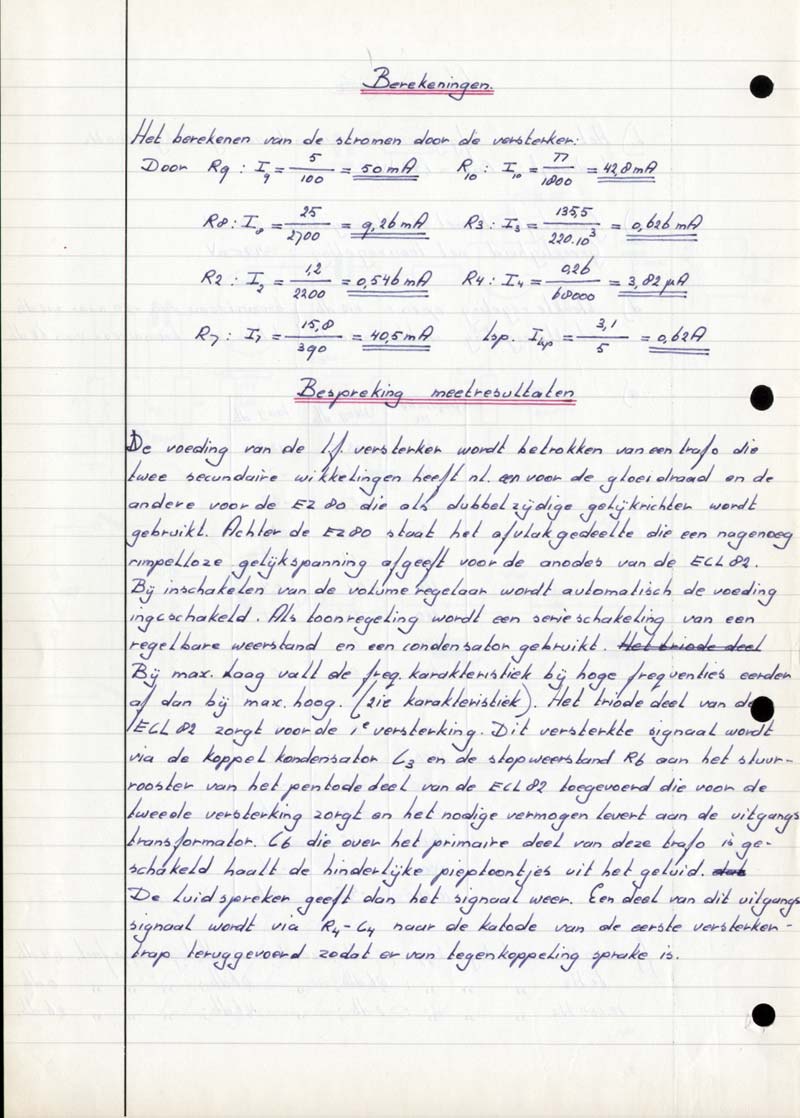 Berekeningen.
Het berekenen van de stromen door de versterker:
Door R9 : I9 = 5/100 = 50 mA R10 : I10 = 77/1800 = 42,8 mA
R8 : I8 = 25/2700 = 9,26 mA R3 : I3 = 135,5/220.10³ = 0,626 mA
R2 : I2 = 1,2/2200 = 0,546 mA R4 : I4 = 0,26/68000 = 3,82 µA
R7 : I7 = 15,8/390 = 40,5 mA Lsp. ILsp = 3,1/5 = 0,62 A
Bespreking meetresultaten
De voeding van de l.f. versterker wordt betrokken van een trafo die
twee secundaire wikkelingen heeft nl. een voor de gloeidraad en de
andere voor de EZ 80 die als dubbelzijdige gelijkrichter wordt
gebruikt. Achter de EZ80 staat het afvlakgedeelte die een nagenoeg
rimpelloze gelijkspanning afgeeft voor de anodes van de ECL 82.
Bij inschakelen van de volume regelaar wordt automatisch de voeding
ingeschakeld. Als toonregeling wordt een serieschakeling van een
regelbare weerstand en een condensator gebruikt. Het triode deel
Bij max. laag valt de freq. karakteristiek bij hoge frequenties eerder
af dan bij max. hoog. (zie karakteristiek). Het triode deel van de
ECL 82 zorgt voor de 1e versterking. Dit versterkte signaal wordt
via de koppel kondensator C3 en de stopweerstand R6 aan het stuur-
rooster van het pentode deel van de ECL 82 toegevoerd die voor de
tweede versterking zorgt en het nodige vermogen levert aan de uitgangs
transformator. C6 die over het primaire deel van deze trafo is ge-
schakeld haalt de hinderlijke pieptoontjes uit het geluid. dat
De luidspreker geeft dan het signaal weer. Een deel van dit uitgangs
signaal wordt via R4-C4 naar de katode van de eerste versterker-
trap teruggevoerd zodat er van tegenkoppeling sprake is.